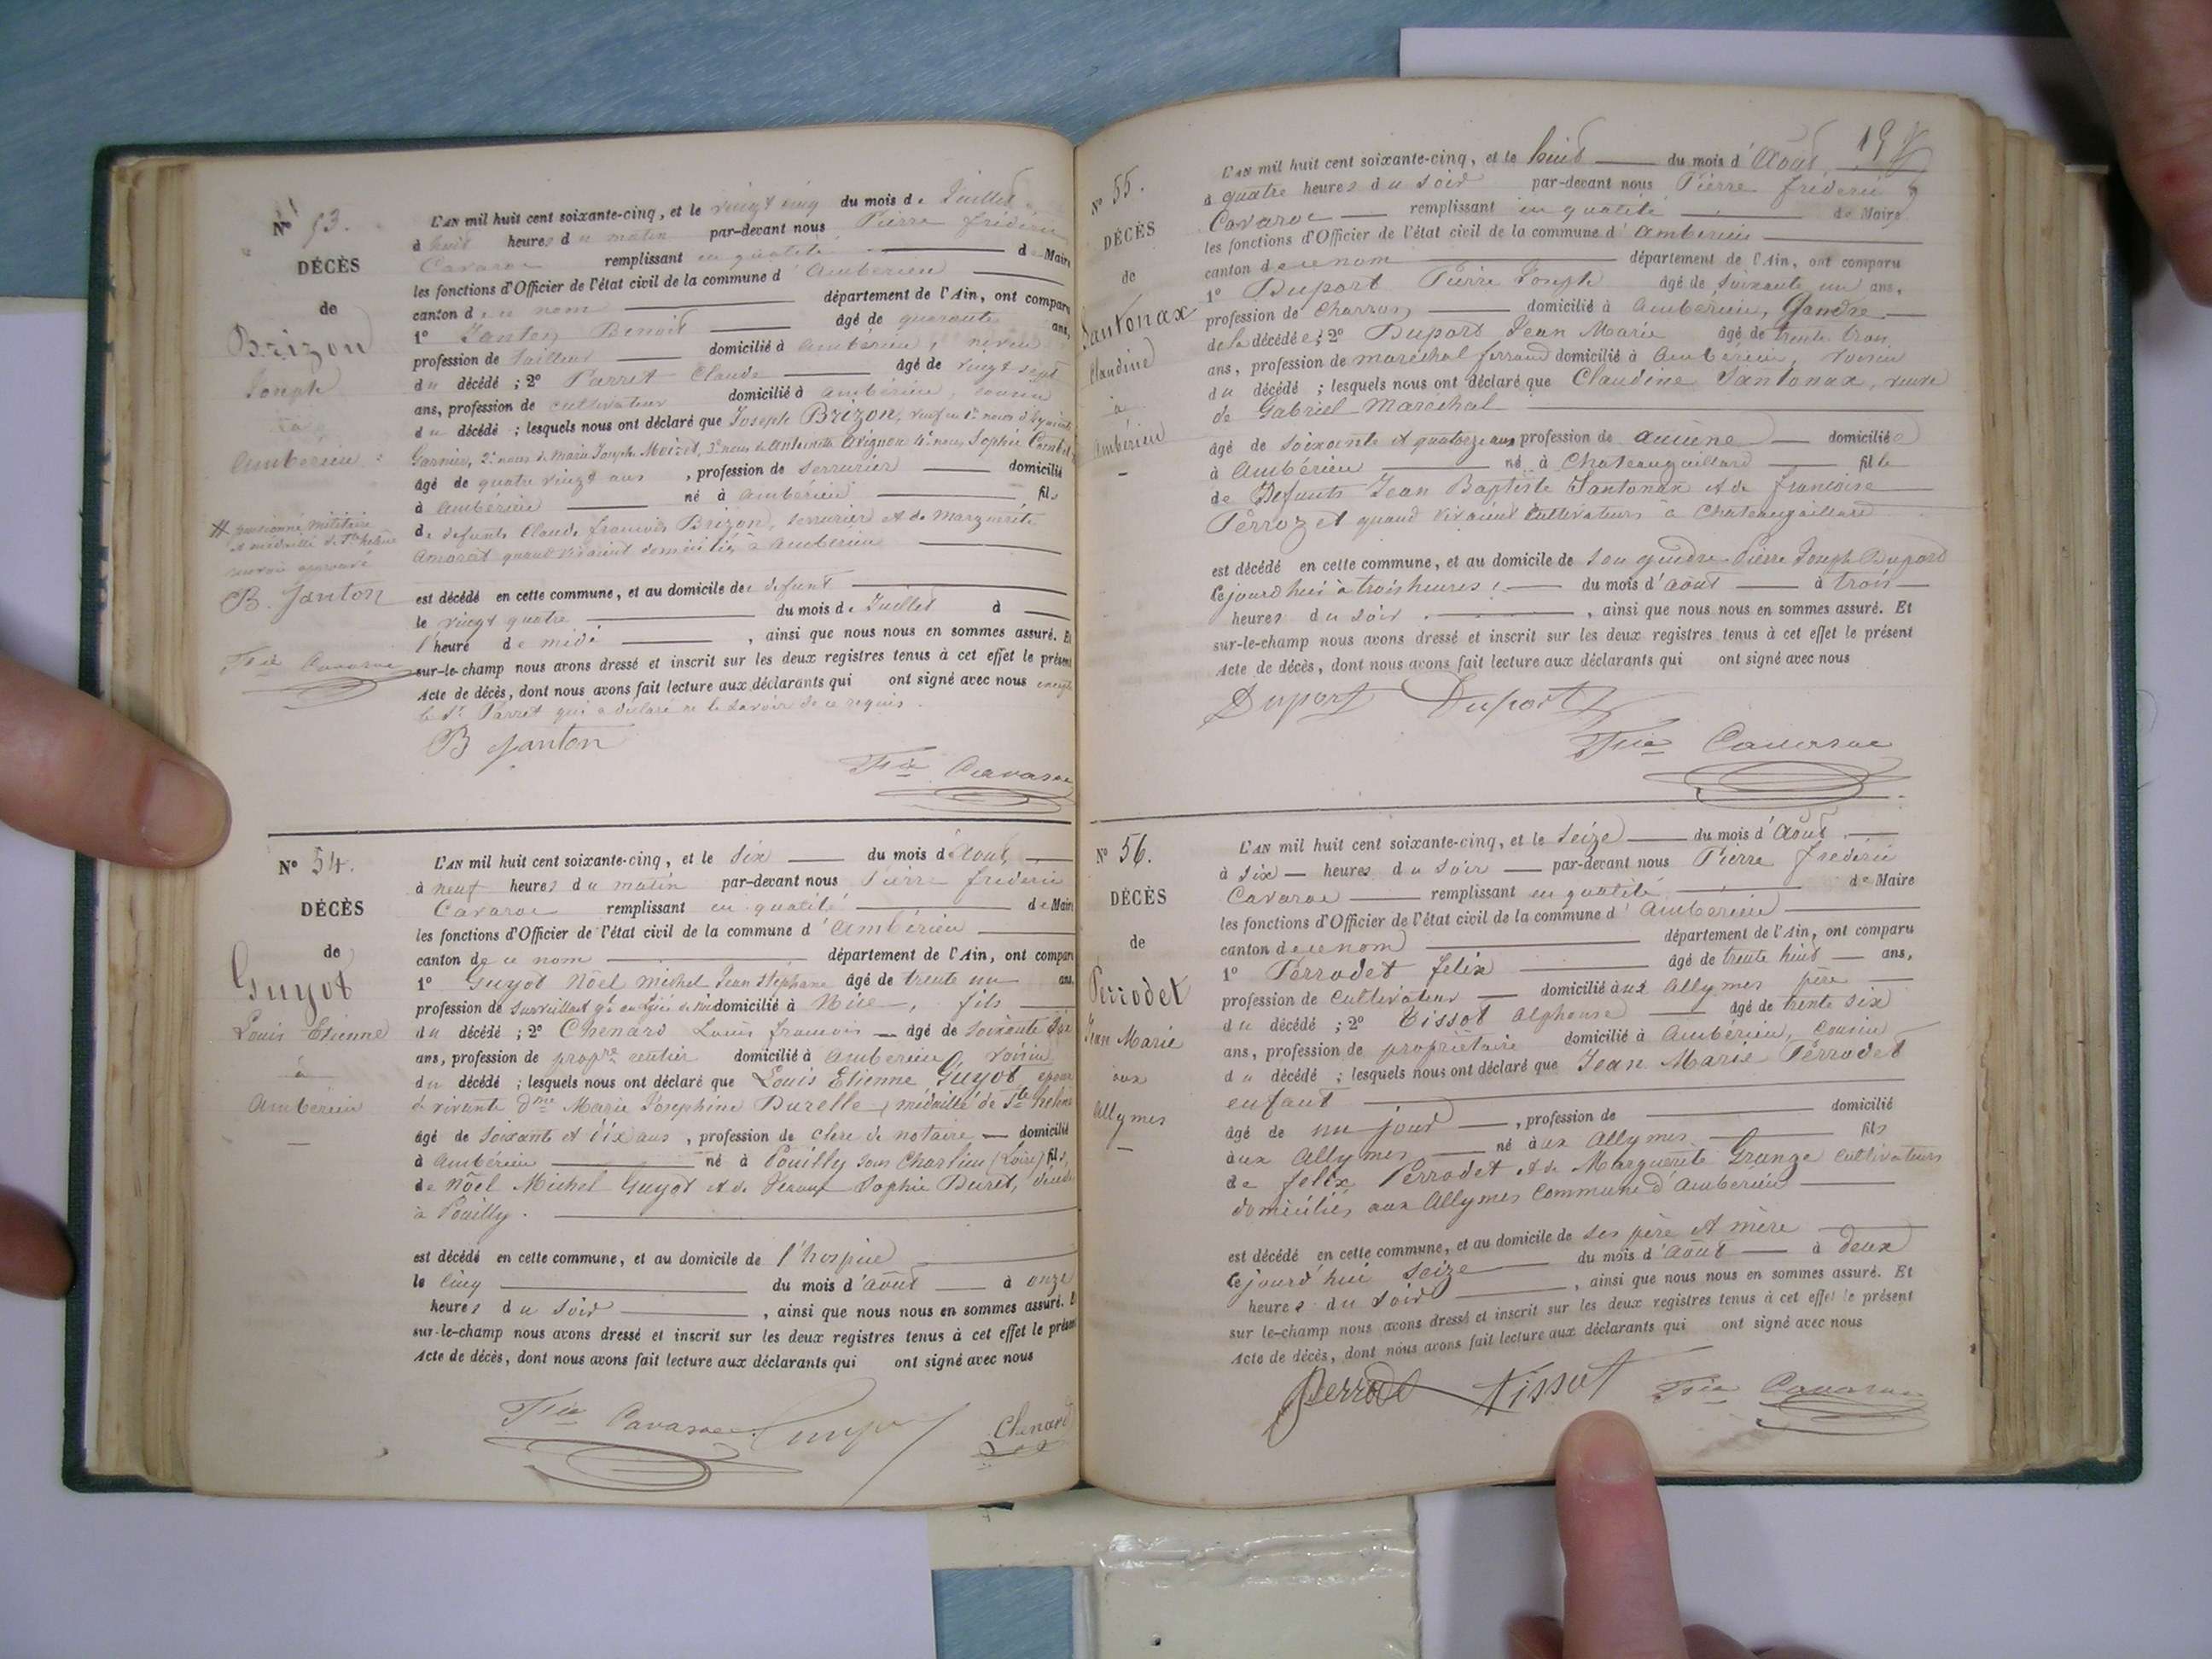 N° 53.
DÉCÈS
de
Brizon
Joseph
à
Ambérieu
# pensionné militaire
et médaillé de Ste hélène
renvoi approuvé
B. Janton
Fric Cavaroc
L'AN mil huit cent soixante-cinq, et le vingt cinq du mois de Juillet
à huit heures du matin par-devant nous Pierre frédéric
Cavaroc remplissant en qualité de Maire
les fonctions d'Officier de l'état civil de la commune d'Ambérieu
canton de ce nom département de l'Ain, ont comparu
1° Janton Benoit âgé de quarante ans,
profession de tailleur domicilié à ambérieu, neveu
du décédé ; 2° Parret Claude âgé de vingt sept
ans, profession de cultivateur domicilié à ambérieu,
du décédé ; lesquels nous ont déclaré que Joseph Brizon, veuf en 1res noces
Garnier, 2e noces de Marie Joseph Moiret, 3e noces de Antoinette Avignon 4e noces Sophie
âgé de quatre vingt ans, profession de serrurier domicilié
à ambérieu né à ambérieu fils
de defunts Claude francois Brizon, serrurier et de Marguerite
Amorat quand vivaient domiciliés à ambérieu
est décédé en cette commune, et au domicile de defunt
le vingt quatre du mois de Juillet à
l'heure de midi, ainsi que nous nous en sommes assuré. Et
sur-le-champ nous avons dressé et inscrit sur les deux registres tenus à cet effet le présent
Acte de décès, dont nous avons fait lecture aux déclarants qui ont signé avec nous excepté
le Sr Parret qui a déclaré ne le savoir de ce requis.
B Janton
Fric Cavaroc
N° 54.
DÉCÈS
de
Guyot
Louis Etienne
à
Ambérieu
L'AN mil huit cent soixante-cinq, et le six du mois d'Aout,
à neuf heures du matin par-devant nous Pierre frederic
Cavaroc remplissant en qualité de Maire
les fonctions d'Officier de l'état civil de la commune d'Ambérieu
canton de ce nom département de l'Ain, ont comparu
1° Guyot Noël michel Jean Stéphane âgé de trente un ans,
profession de surveillant domicilié à Nice, fils
du décédé ; 2° Chenard Louis francois âgé de soixante six
ans, profession de proprre rentier domicilié à ambérieu, voisin
du décédé ; lesquels nous ont déclaré que Louis Etienne Guyot époux
de vivante dme Marie Josephine Durelle, médaillé de Ste hélène
âgé de soixante et dix ans, profession de clerc de notaire domicilié
à ambérieu né à Pouilly sous Charlieu (Loire) fils,
de Noël Michel Guyot et de Jeanne Sophie Duret, décédés
à Pouilly.
est décédé en cette commune, et au domicile de l'hospice
le cinq du mois d'août à onze
heures du soir, ainsi que nous nous en sommes assuré. Et
sur-le-champ nous avons dressé et inscrit sur les deux registres tenus à cet effet le présent
Acte de décès, dont nous avons fait lecture aux déclarants qui ont signé avec nous
Fric Cavaroc Guyot Chenard
N° 55.
DÉCÈS
de
Santonax
Claudine
à
Ambérieu
L'AN mil huit cent soixante-cinq, et le huit du mois d'Aout,
à quatre heures du soir par-devant nous Pierre frederic
Cavaroc remplissant en qualité de Maire
les fonctions d'Officier de l'état civil de la commune d'ambérieu
canton de ce nom département de l'Ain, ont comparu
1° Duport Pierre Joseph âgé de soixante un ans,
profession de charron domicilié à ambérieu, Gendre
de la décédée ; 2° Duport Jean Marie âgé de trente trois
ans, profession de maréchal ferrand domicilié à ambérieu, voisin
du décédé ; lesquels nous ont déclaré que Claudine Santonax, veuve
de Gabriel Maréchal
âgé de soixante et quatorze ans profession de aucune domiciliée
à Ambérieu né à Chateaugaillard fille
de Defunts Jean Baptiste Santonax et de francoise
Perrozet quand vivaient cultivateurs à Chateaugaillard
est décédé en cette commune, et au domicile de son gendre Pierre Joseph Duport
Cejourdhui à trois heures du mois d'août à trois
heures du soir, ainsi que nous nous en sommes assuré. Et
sur-le-champ nous avons dressé et inscrit sur les deux registres tenus à cet effet le présent
Acte de décès, dont nous avons fait lecture aux déclarants qui ont signé avec nous
Duport Duport
Fric Cavaroc
N° 56.
DÉCÈS
de
Perrodet
Jean Marie
aux
Allymes
L'AN mil huit cent soixante-cinq, et le seize du mois d'Aout
à six heures du soir par-devant nous Pierre frederic
Cavaroc remplissant en qualité de Maire
les fonctions d'Officier de l'état civil de la commune d'ambérieu
canton de ce nom département de l'Ain, ont comparu
1° Perrodet felix âgé de trente huit ans,
profession de cultivateur domicilié aux Allymes père
du décédé ; 2° Tissot Alphonse âgé de trente six
ans, profession de propriétaire domicilié à ambérieu, cousin
du décédé ; lesquels nous ont déclaré que Jean Marie Perrodet
enfant
âgé de un jour, profession de domicilié
aux Allymes né aux Allymes fils
de felix Perrodet et de Marguerite Grange cultivateurs
domiciliés aux Allymes Commune d'ambérieu
est décédé en cette commune, et au domicile de ses père et mère
Cejourd'hui seize du mois d'août à deux
heures du soir, ainsi que nous nous en sommes assuré. Et
sur le-champ nous avons dressé et inscrit sur les deux registres tenus à cet effet le présent
Acte de décès, dont nous avons fait lecture aux déclarants qui ont signé avec nous
Perrodet Tissot Fric Cavaroc